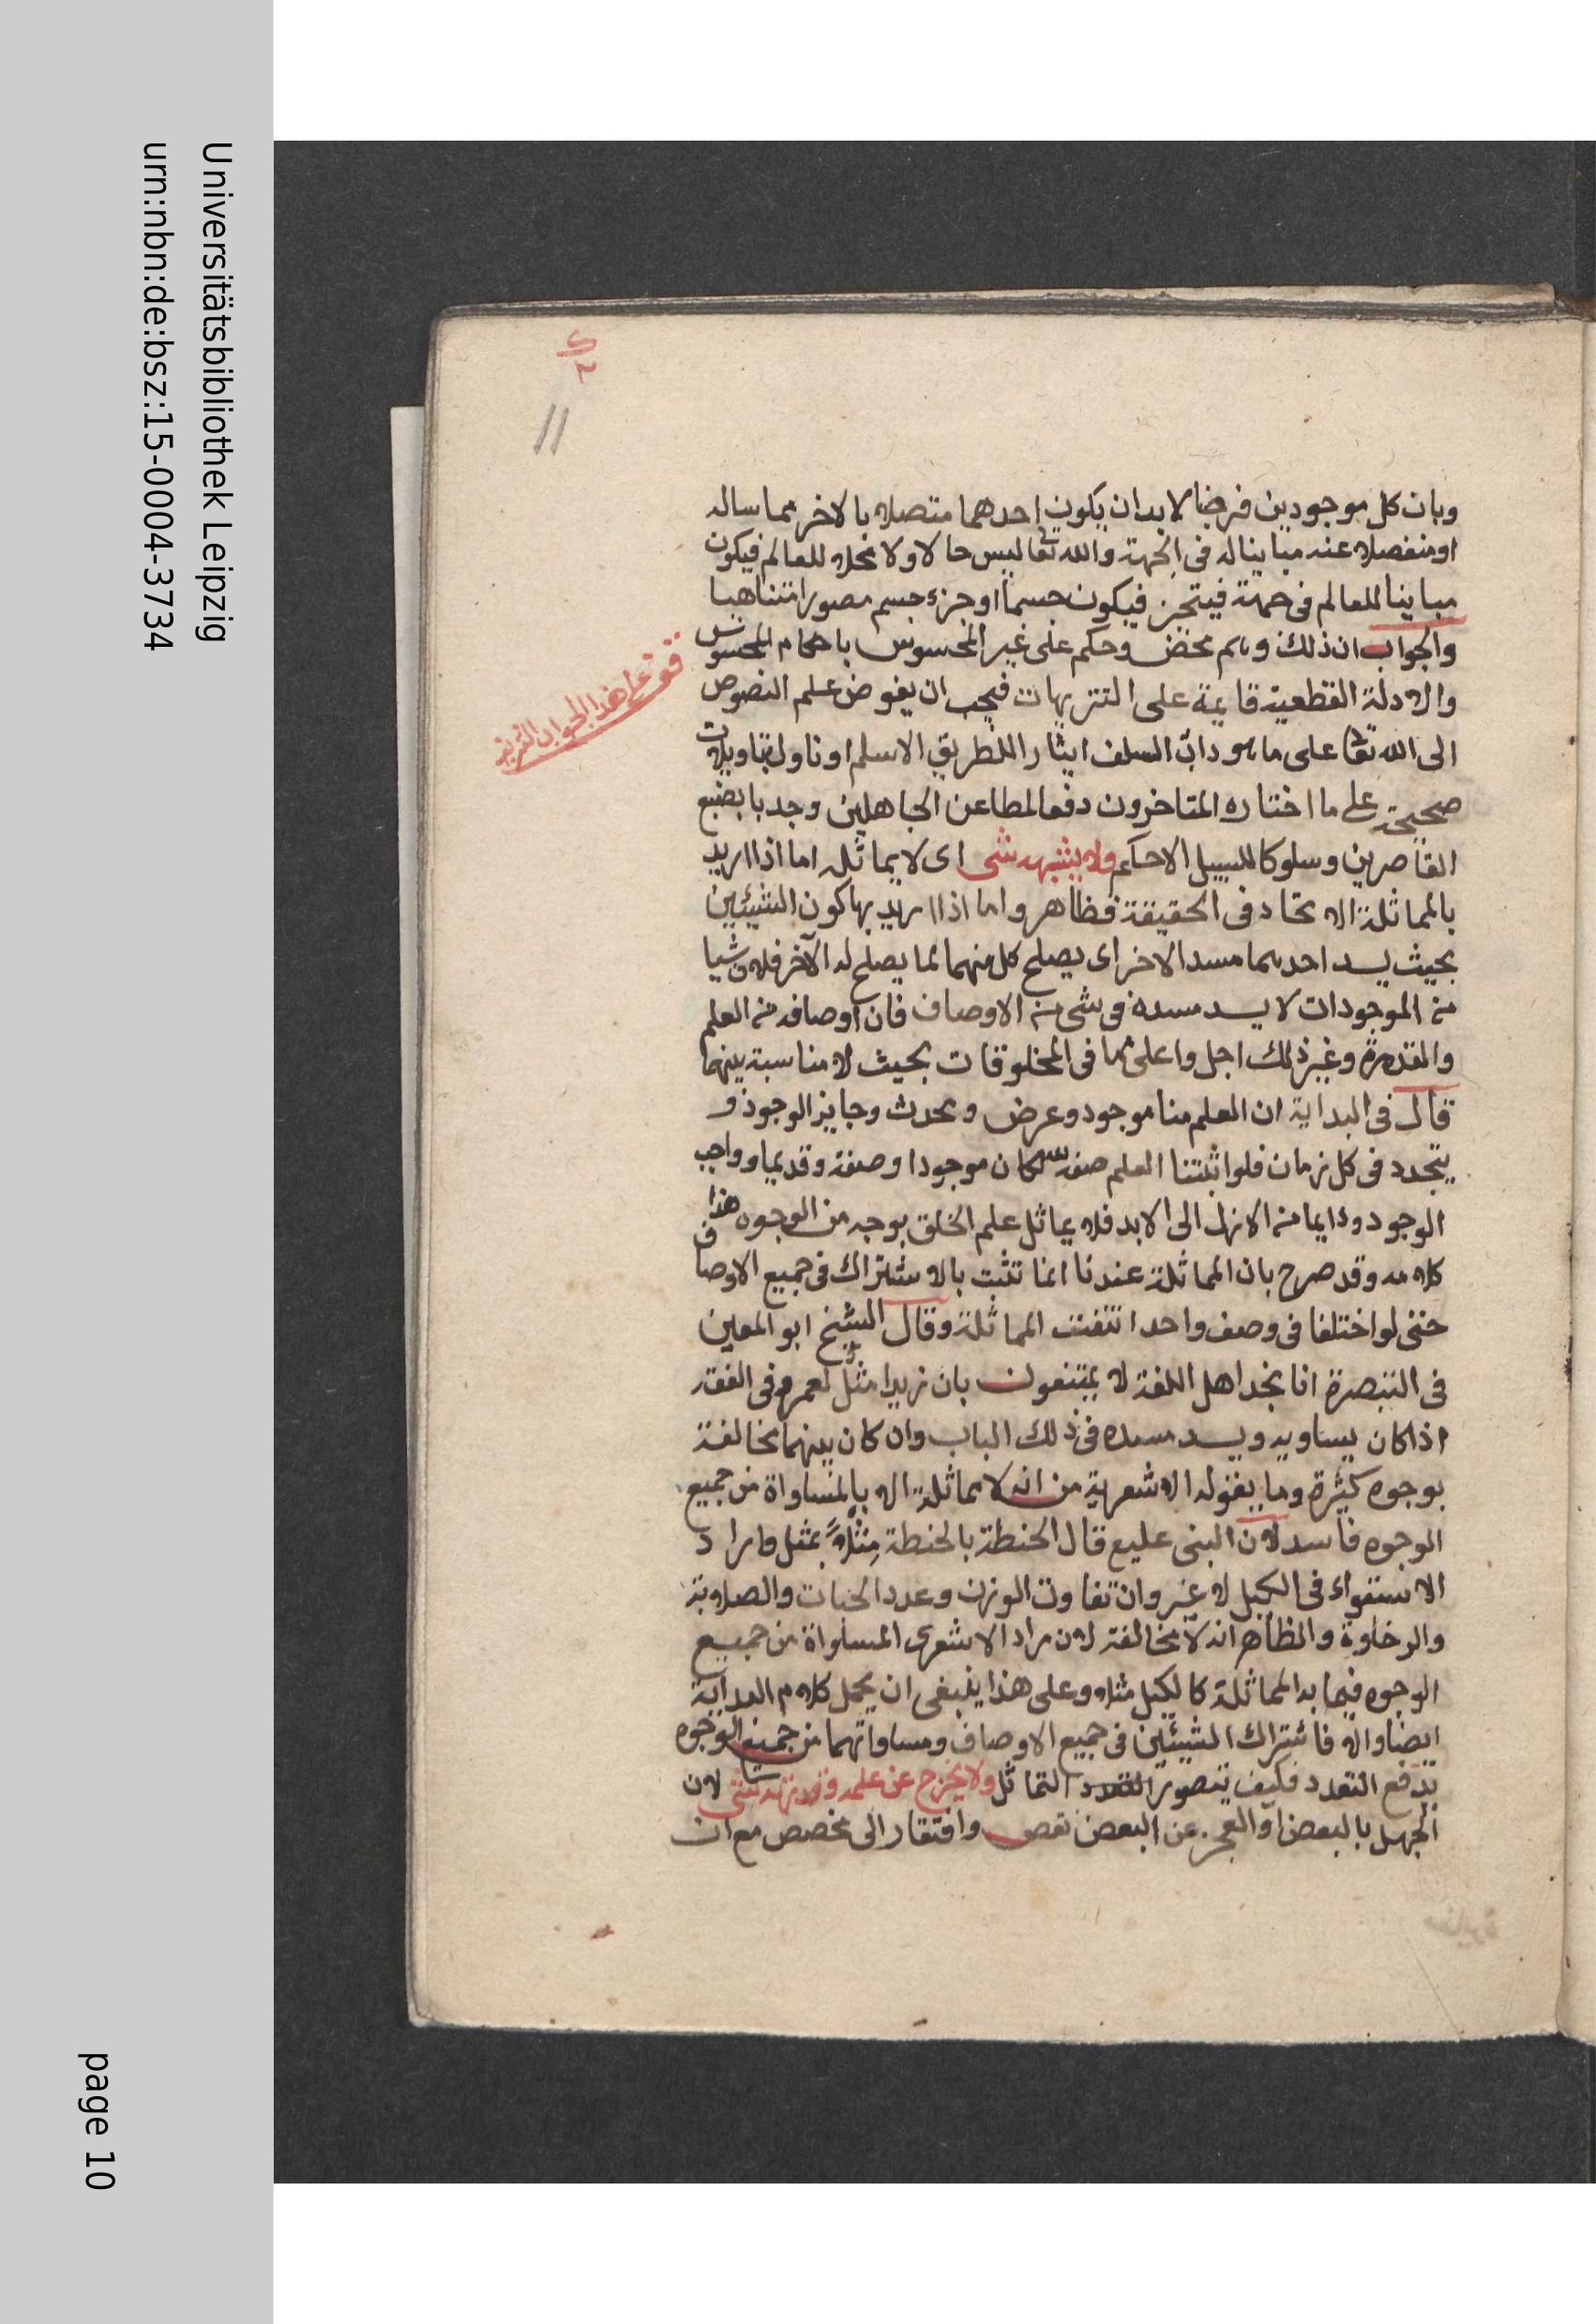 وبان كل موجودين فرضا لا بد ان يكون احدهما متصلا بالاخر مماسا له
او منفصلا عنه مباينا له فى الجهة والله تعا ليس حالا ولا محلا للعالم فيكون
مباينا للعالم فى جهة فيتحيز فيكون جسما او جزء جسم مصورا متناهيا
والجواب ان ذلك وهم محض وحكم على غير المحسوس باحكام المحسوس
والادلة القطعية قايمة على التنزيهات فيجب ان يفوض علم النصوص
الى الله تعا على ما هو داب السلف ايثارا للطريق الاسلم او تاول بتاويلات
صحيحة على ما اختاره المتاخرون دفعا لمطاعن الجاهلين وجدبا بضبع
القاصرين وسلوكا للسبيل الاحكم ولا يشبهه شى اى لا يماثله اما اذا اريد
بالمماثلة الاتحاد فى الحقيقة فظاهر واما اذا اريد بها كون الشيئين
بحيث يسد احدهما مسد الاخر اى يصلح كل منهما لما يصلح له الآخر فلان شيا
من الموجودات لا يسد مسده فى شى من الاوصاف فان اوصافه من العلم
والقدرة وغير ذلك اجل واعلى مما فى المخلوقات بحيث لا مناسبة بينهما
قال فى البداية ان العلم منا موجود وعرض ومحدث وجايز الوجود و
يتجدد فى كل زمان فلو اثبتنا العلم صفة لله لكان موجودا وصفة وقديما وواجب
الوجود ودايما من الازل الى الابد فلا يماثل علم الخلق بوجه من الوجوه هذا
كلامه وقد صرح بان المماثلة عندنا انما تثبت بالاشتراك فى جميع الاوصاف
حتى لو اختلفا فى وصف واحد انتفت المماثلة وقال الشيخ ابو المعين
فى التبصرة انا نجد اهل اللغة لا يمتنعون بان زيدا مثل لعمرو فى الفقه
اذا كان يساويه ويسد مسده فى ذلك الباب وان كان بينهما مخالفة
بوجوه كثيرة وما يقوله الاشعرية من انه لا مماثلة الا بالمساواة من جميع
الوجوه فاسد لان النبى عليع قال الحنطة بالحنطة مثلاً بمثل واراد
الاستواء فى الكيل لا غير وان تفاوت الوزن وعدد الحبات والصلابة
والرخاوة والظاهر انه لا مخالفة لان مراد الاشعرى المساواة من جميع
الوجوه فيما به المماثلة كالكيل مثلا وعلى هذا ينبغى ان يحمل كلام البداية
ايضا والا فاشتراك الشيئين فى جميع الاوصاف ومساواتهما من جميع الوجوه
يدفع التعدد فكيف يتصور التماثل ولا يخرج عن علمه وقدرته شى لان
الجهل بالبعض او العجز عن البعض نقص وافتقار الى مخصص مع ان
قف على هذا الجواب
11
Universitätsbibliothek Leipzig
urn:nbn:de:bsz:15-0004-3734
page 10